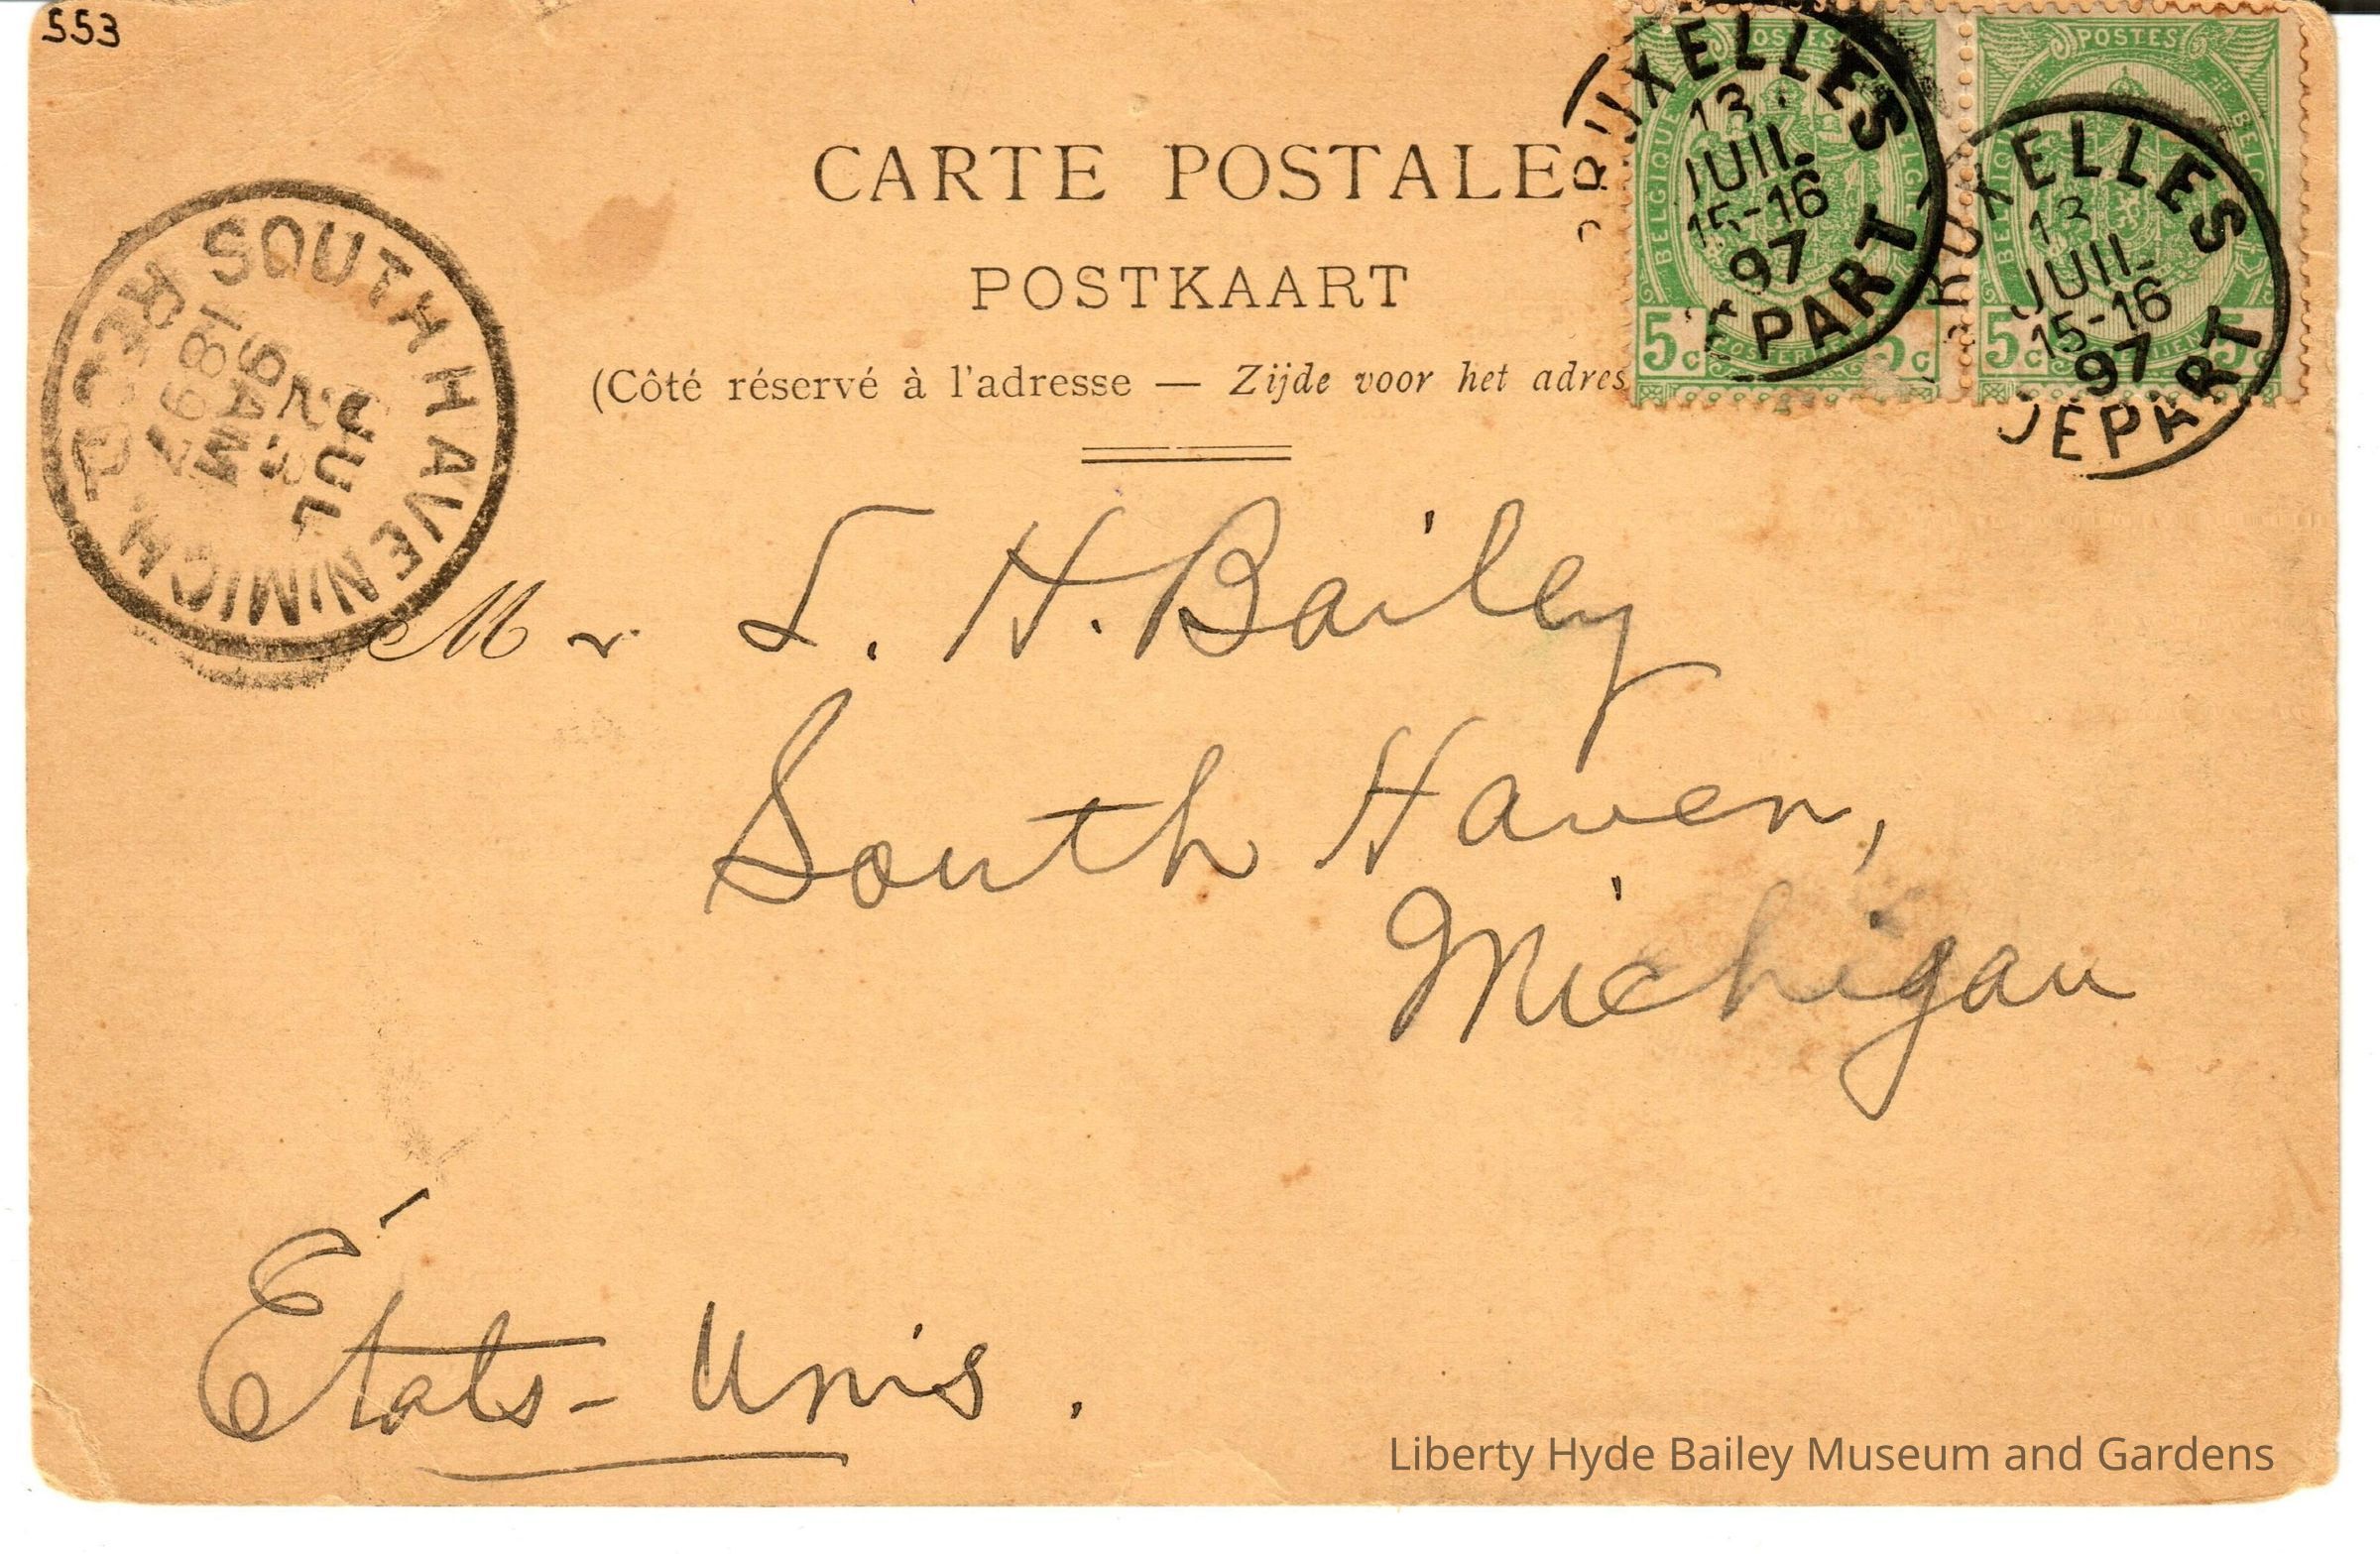 553
CARTE POSTALE
POSTKAART
(Côté réservé à l'adresse — Zijde voor het adres
POSTES
BELGIQUE
5c 5c
POSTES
5c 5c
BRUXELLES
13
JUIL
15-16
97
PART
BRUXELLES
13
JUIL
15-16
97
DEPART
SOUTH HAVEN MICH. REC'D
JUL
9 AM
1897
Mr L. H. Bailey
South Haven,
Michigan
États-Unis.
Liberty Hyde Bailey Museum and Gardens